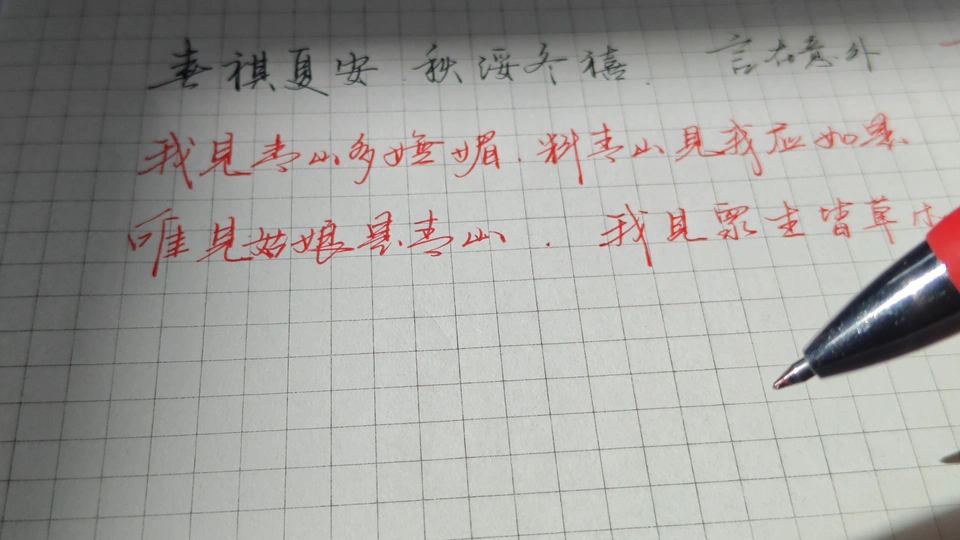 春祺夏安 秋绥冬禧. 言在意外
我見青山多嫵媚.料青山見我应如是.
唯見姑娘是青山. 我見眾生皆草木